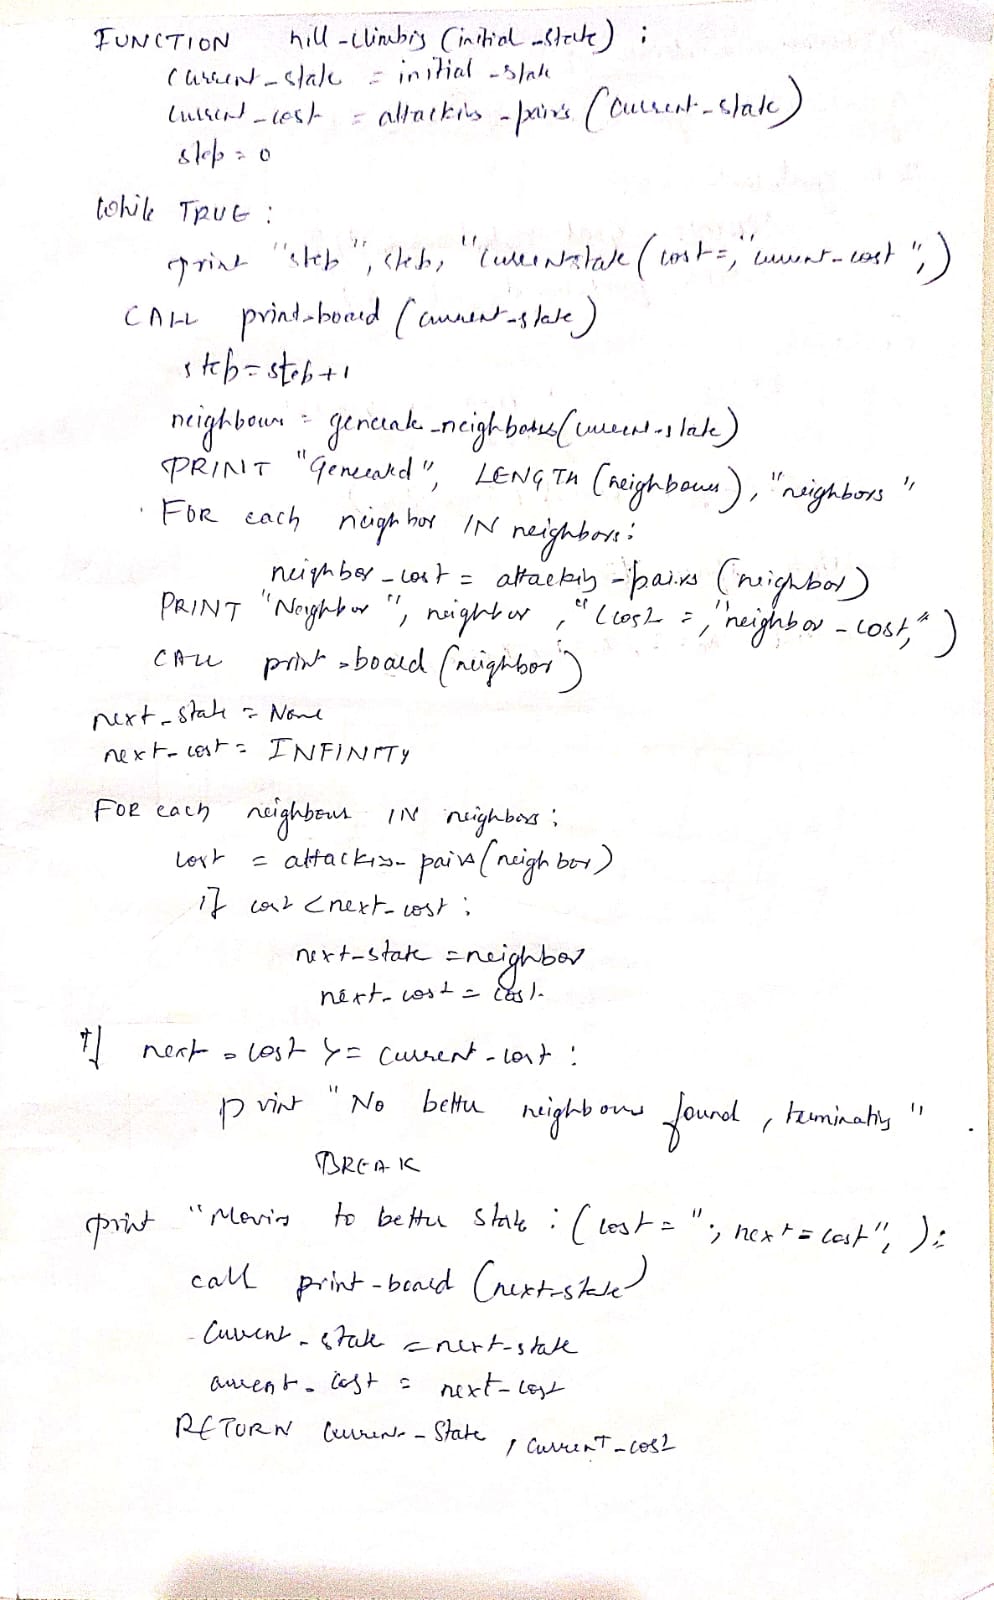 FUNCTION hill-climbing (initial-state) ;
current_state = initial-state
current_cost = attacking-pairs (current-state)
step = 0
while TRUE :
print "step", step, "current state (cost=," current-cost ",)
CALL print-board (current-state)
step = step+1
neighbours = generate-neighbores(current-state)
PRINT "Generated", LENGTH (neighbours), "neighbors"
FOR each neighbor IN neighbors:
neighbor-cost = attacking-pairs (neighbor)
PRINT "Neighbor", neighbor, "(cost =," neighbor-cost," )
CALL print-board (neighbor)
next-state = None
next-cost = INFINITY
FOR each neighbours IN neighbors ;
cost = attacking-pairs(neighbor)
if cost <next-cost ;
next-state = neighbor
next-cost = cost.
If next-cost >= current-cost :
print "No better neighbours found, terminating".
BREAK
print "Moving to better state : (cost = ", next=cost", );
call print-board (next-state)
Current-state = next-state
current-cost = next-cost
RETURN Current-State, current-cost